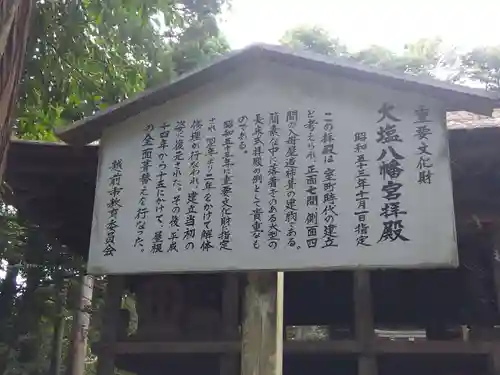 重要文化財
大塩八幡宮拝殿
昭和五十三年十月一日指定
この拝殿は室町時代の建立
と考えられ、正面七間、側面四
間の入母屋造柿葺の建物である。
簡素な中に落着きのある大型の
長床式拝殿の例として貴重なも
のである。
昭和五三年に重要文化財に指定
され、同年より二年をかけて解体
修理が行なわれて、建立当初の
姿に復元された。その後、平成
十四年から十五にかけて、屋根
の全面葺替えを行なった。
越前市教育委員会